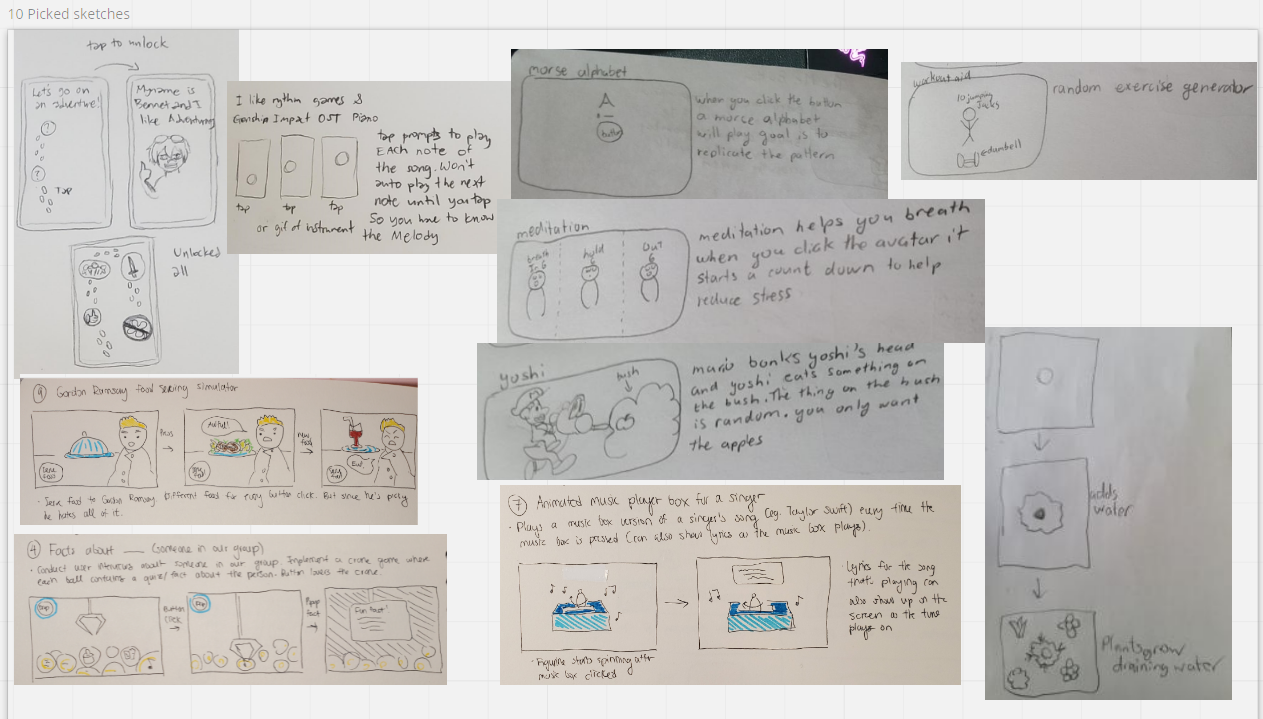 10 Picked sketches
tap to unlock
Let's go on
an adventure!
?
?
TAP
My name is
Bennet and I
like Adventuring
Unlocked
all
I like rythm games &
Genshin Impact OST Piano
tap tap tap
or gif of instrument
tap prompts to play
EAch note of
the song. Won't
auto play the next
note until you tap
So you have to know
the Melody
morse alphabet
A
button
when you click the button
a morse alphabet
will play goal is to
replicate the pattern
workout aid
10 jumping
Jacks
dumbell
random exercise generator
meditation
breath
hold
6
out
6
meditation helps you breath
when you click the avatar it
starts a count down to help
reduce stress
yoshi
bush
mario bonks yoshi's head
and yoshi eats something on
the bush. The thing on the bush
is random. you only want
the apples
9 Gordon Ramsay food serving simulator
Press
Awful!
New
food
Ew!
Serve
food
Serve
food
Serve
food
• Serve food to Gordon Ramsay. Different food for every button click. But since he's picky
he hates all of it.
4 Facts about ___ (someone in our group)
• Conduct user interviews about someone in our group. Implement a crane game where
each ball contains a quote/fact about the person. Button lowers the crane.
Button
click
fact
Fun fact!
7 Animated music player box for a singer
• Plays a music box version of a singer's song (eg. Taylor Swift) every time the
music box is pressed (can also show lyrics as the music box plays).
• Lyrics for the song
that's playing can
also show up on the
screen as the tune
plays on
• Figurine starts spinning after
music box clicked
adds
water
Plants grow
draining water